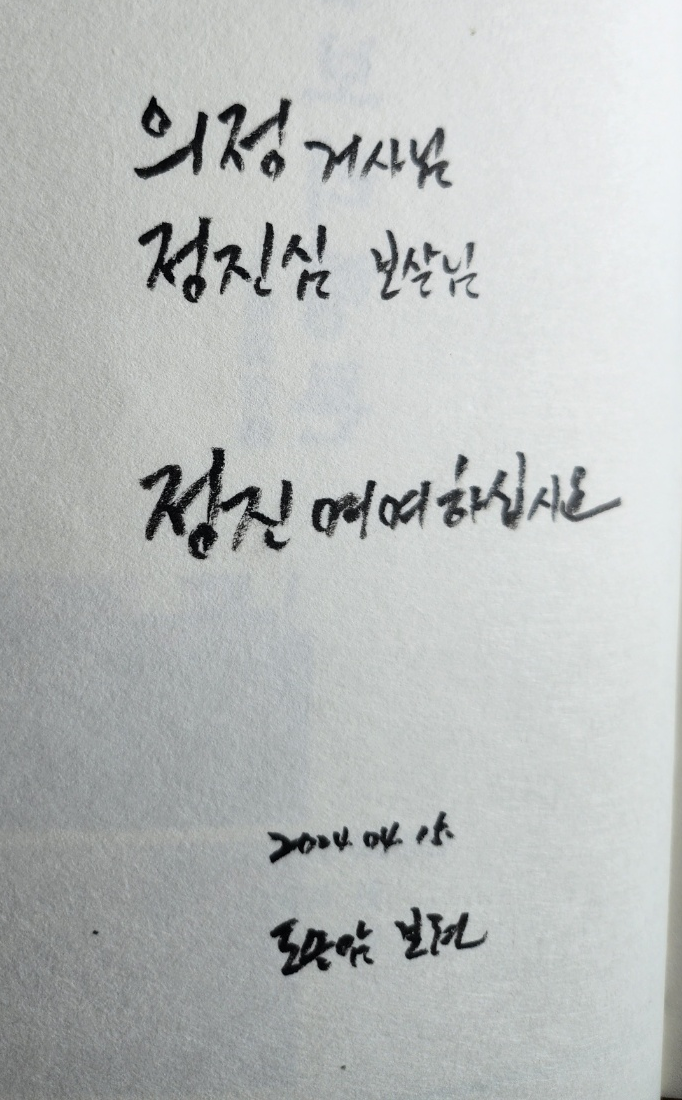 의정 거사님
정진심 보살님
정진 여여하십시오
2024. 04. 15.
토굴암 보현